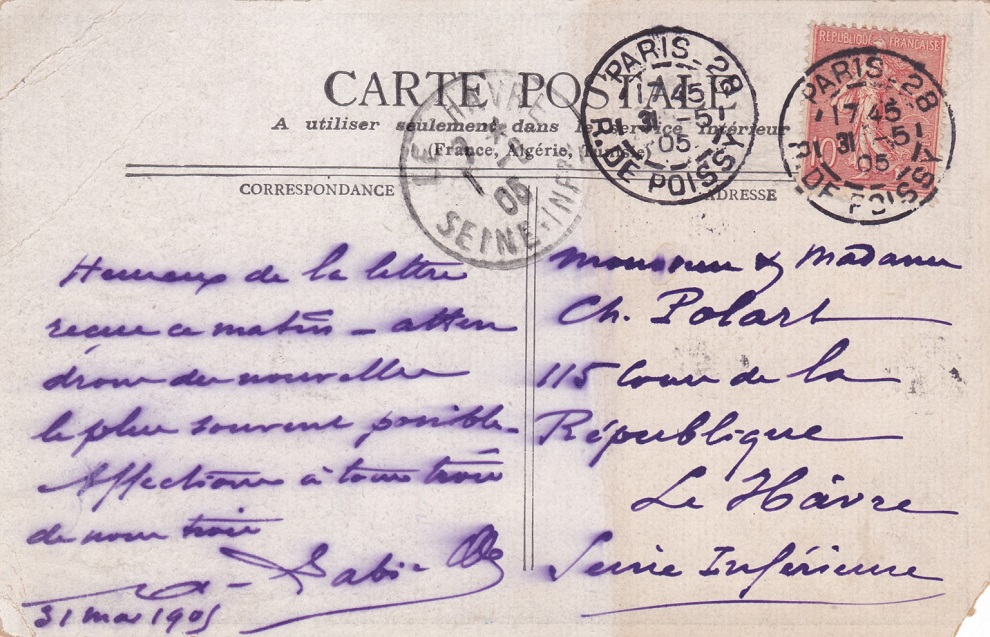 RÉPUBLIQUE FRANÇAISE
10
PARIS-28
17 45
31 -5
05
R. DE POISSY
PARIS-28
17 45
31 -5
05
R. DE POISSY
CARTE POSTALE
A utiliser seulement dans le service intérieur
(France, Algérie, Tunisie)
LE HAVRE
1
05
SEINE-INFRE
CORRESPONDANCE
ADRESSE
Heureux de la lettre
reçue ce matin – atten
drons des nouvelles
le plus souvent possible –
Affections à tous trois
de nous trois
31 mai 1905
Monsieur & Madame
Ch. Polart
115 Cours de la
République
Le Hâvre
Seine Inférieure